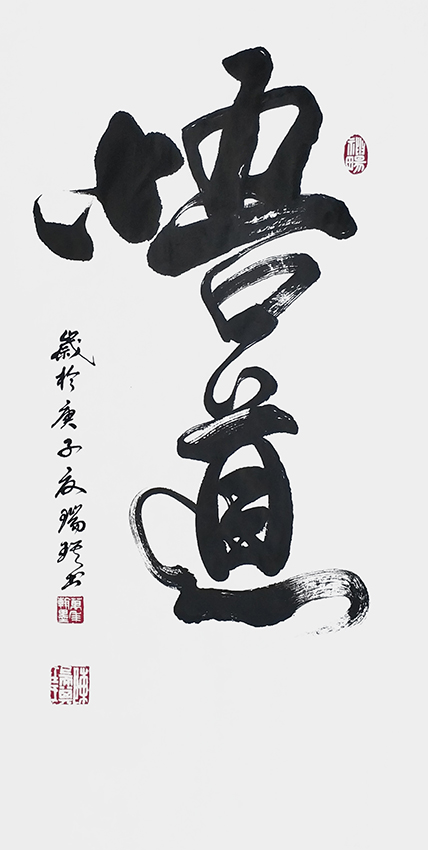 悟道
歲於庚子夜瑞琪書